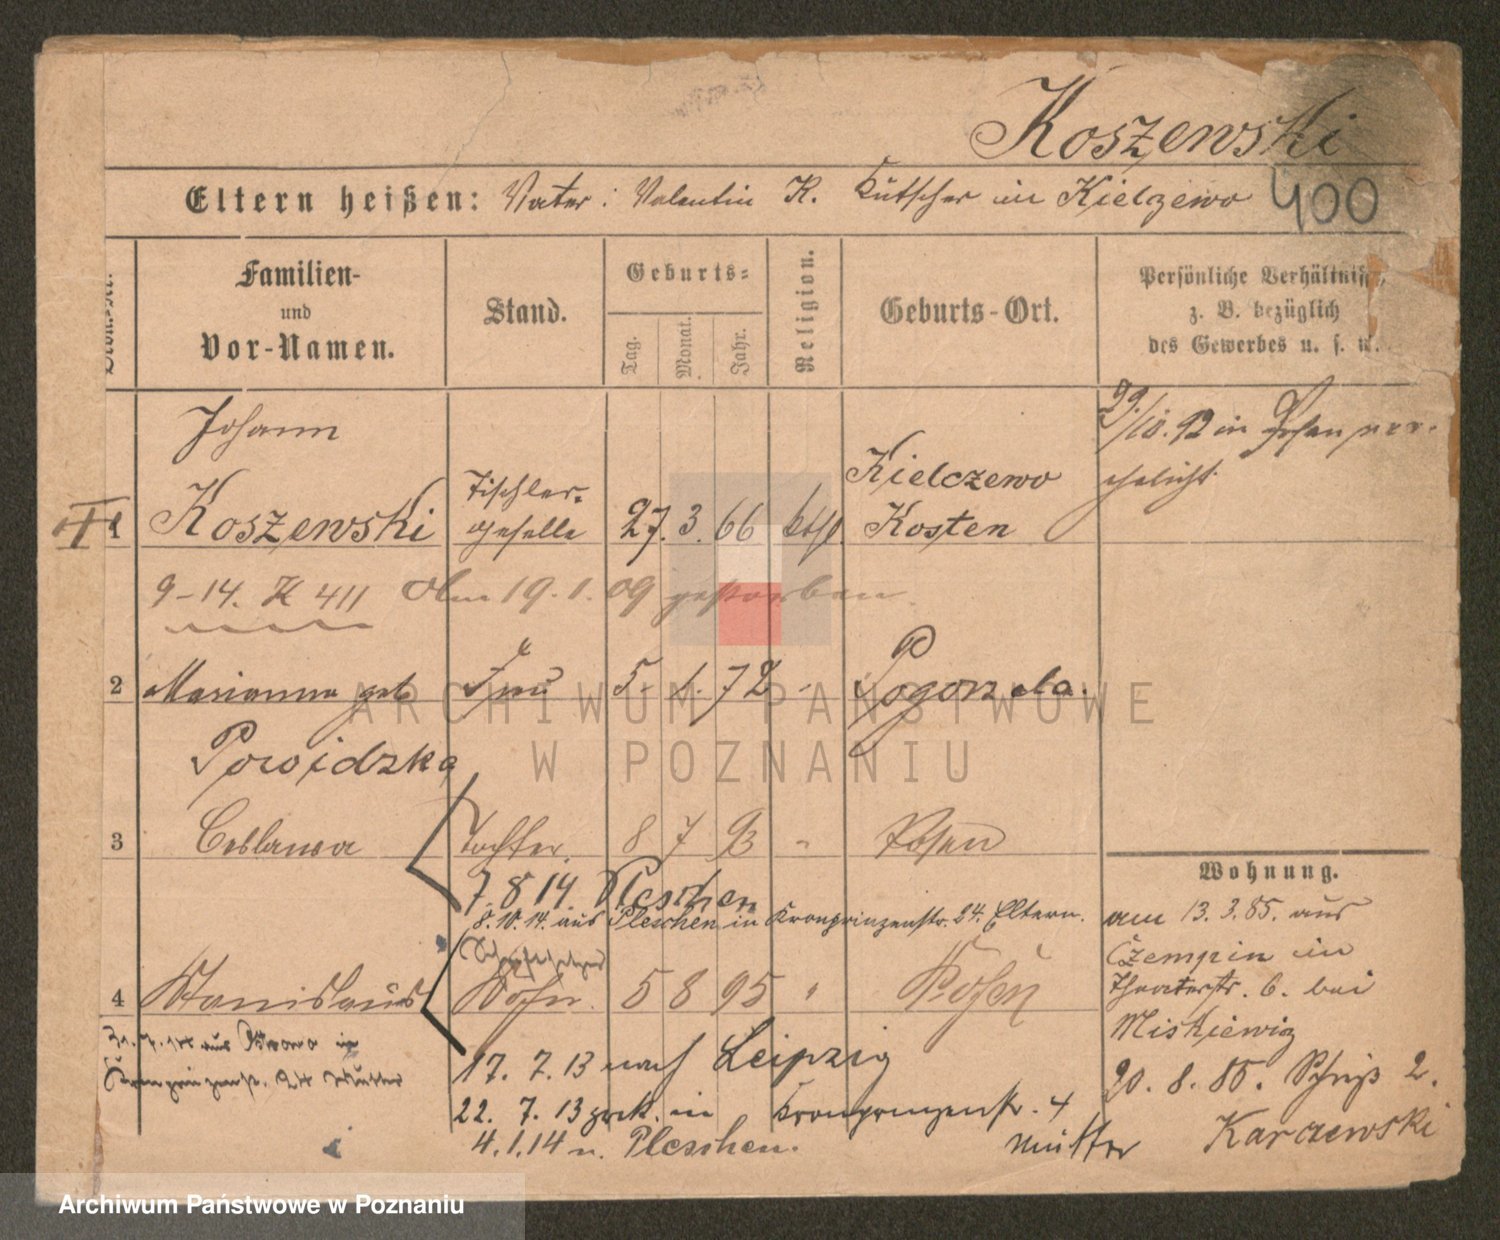 Koszewski
Eltern heißen: Vater: Valentin K. Kutscher in Kielczewo 400
Familien- und Vor-Namen.
Stand.
Geburts-
Tag. Monat. Jahr.
Religion.
Geburts-Ort.
Persönliche Verhältnisse,
z. B. bezüglich
des Gewerbes u. s. w.
Johann
29/10. 92 in Posen ver-
ehelicht
1 Koszewski Tischler-
geselle 27. 3. 66 kath. Kielczewo
Kosten
9-14. K 411 Am 19.1.09 gestorben.
2 Marianna geb Frau 5. 1. 72 - Pogorzela.
Powidzka
3 Ceslawa Tochter. 8 7 93 " Posen
7. 8 14. Pleschen
8.10.14. aus Pleschen in Kronprinzenstr. 24. Eltern.
4 Stanislaus Sohn. 5 8 95 " Posen
aus in
Kronprinzenstr. 24 Mutter
17. 7. 13 nach Leipzig
22. 7. 13 zrck. in Kronprinzenstr. 4
Mutter
4.1.14 n. Pleschen.
Wohnung.
am 13. 3. 85. aus
Czempin in
Theaterstr. 6. bei
Miskiewiz
20. 8. 85. 2.
Karczewski
ARCHIWUM PAŃSTWOWE
W POZNANIU
Archiwum Państwowe w Poznaniu